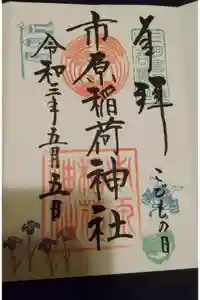 奉拝
こどもの日
市原稲荷神社
令和三年五月五日